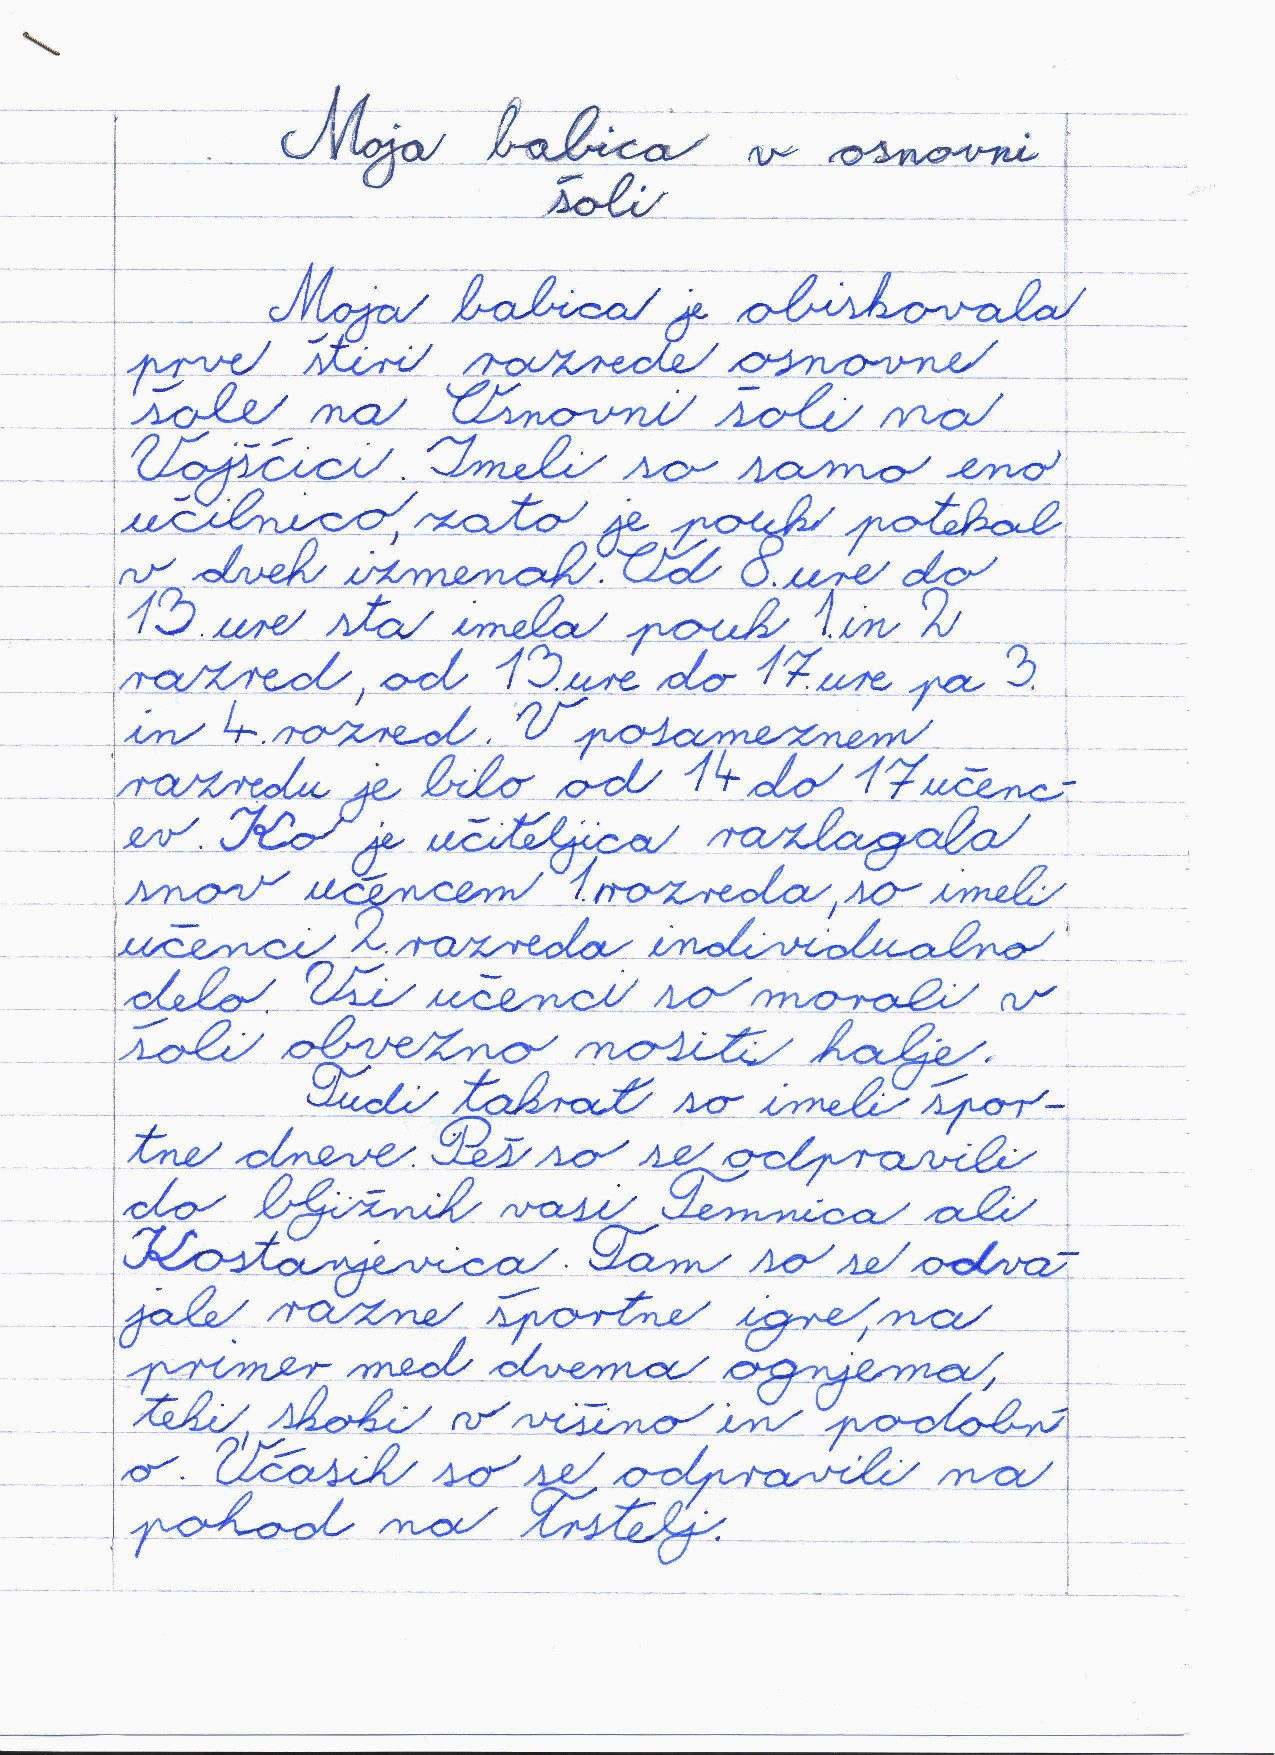 Moja babica v osnovni
šoli
Moja babica je obiskovala
prve štiri razrede osnovne
šole na Osnovni šoli na
Vojščici. Imeli so samo eno
učilnico, zato je pouk potekal
v dveh izmenah. Od 8. ure do
13. ure sta imela pouk 1. in 2
razred, od 13. ure do 17. ure pa 3.
in 4. razred. V posameznem
razredu je bilo od 14 do 17 učenc-
ev. Ko je učiteljica razlagala
snov učencem 1. razreda, so imeli
učenci 2. razreda individualno
delo. Vsi učenci so morali v
šoli obvezno nositi halje.
Tudi takrat so imeli špor-
tne dneve. Peš so se odpravili
do bljižnih vasi Temnica ali
Kostanjevica. Tam so se odva-
jale razne športne igre, na
primer med dvema ognjema,
teki, skoki v višino in podobn
o. Včasih so se odpravili na
pohod na Trstelj.